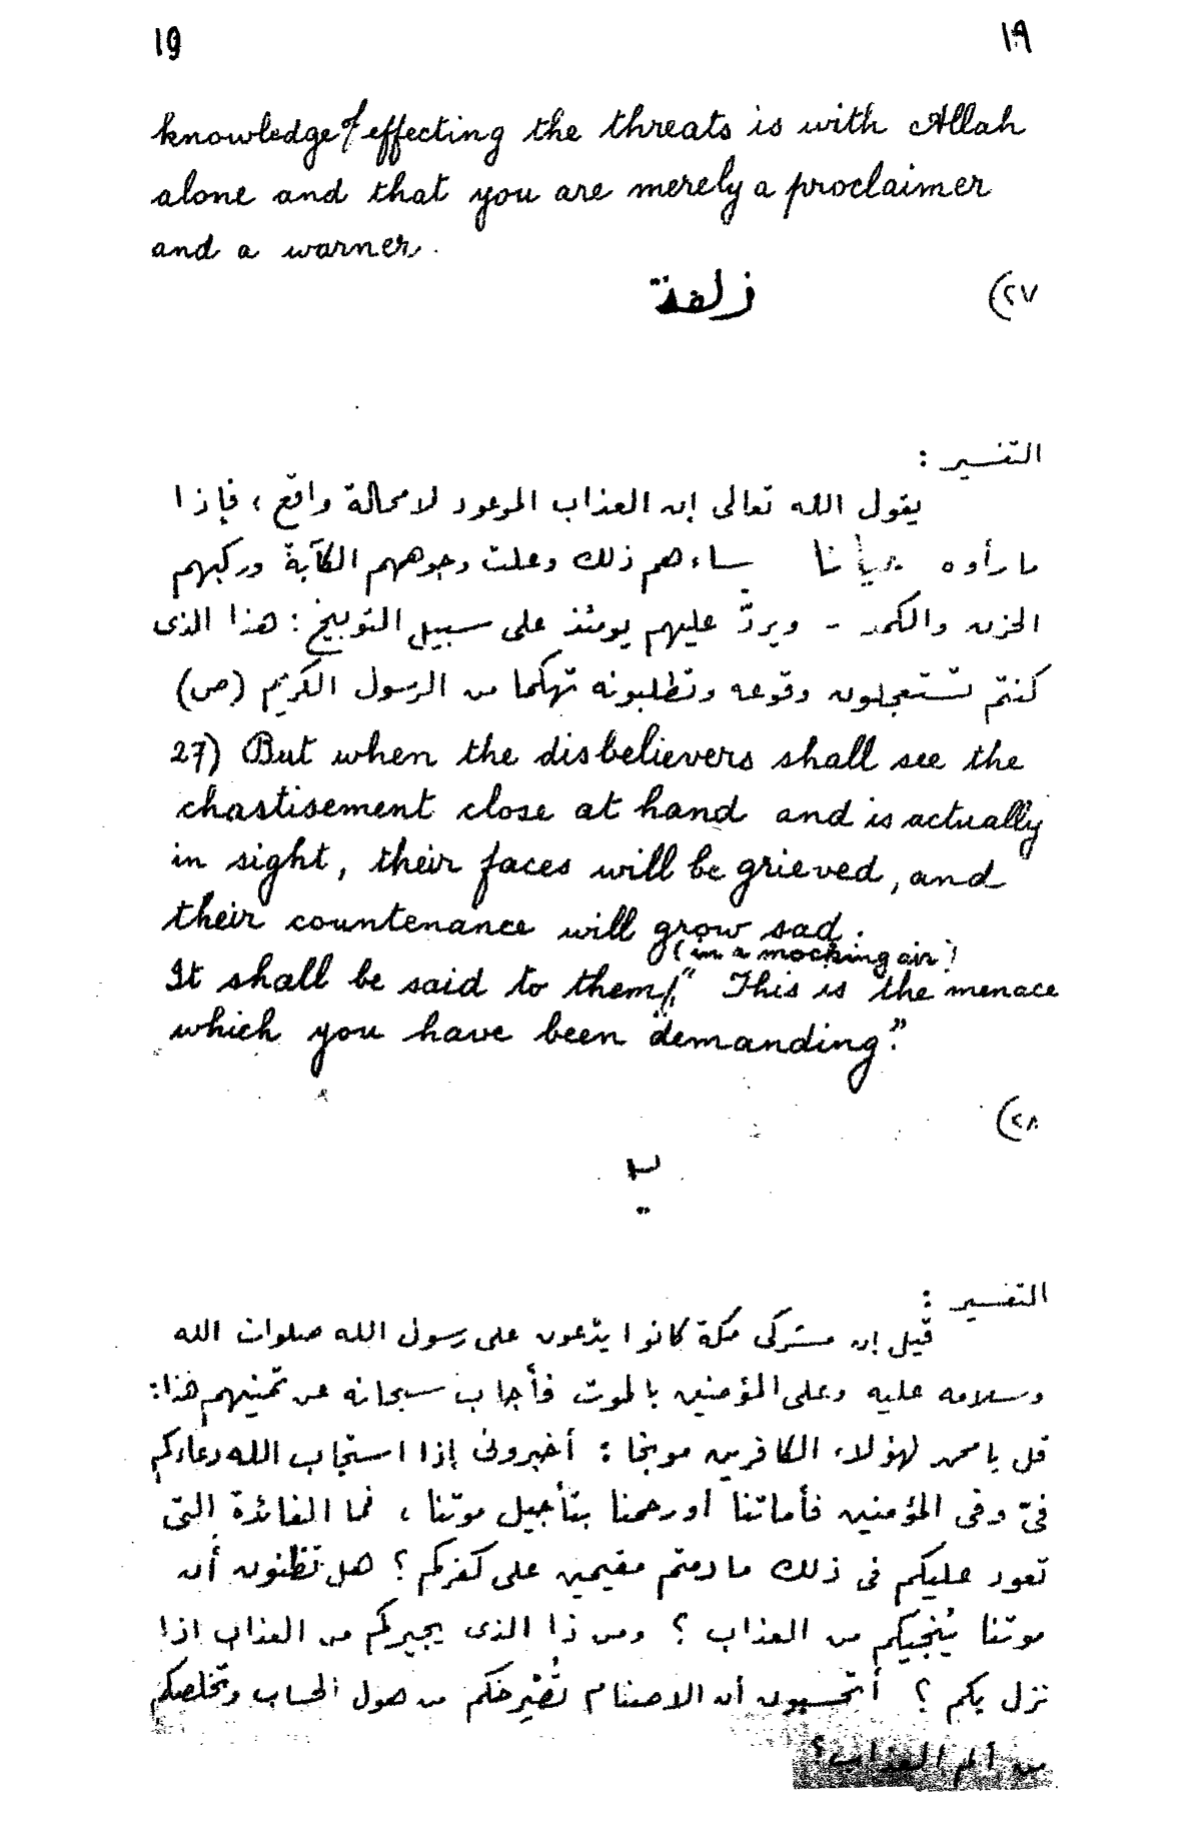 19 ١٩
knowledge of effecting the threats is with Allah
alone and that you are merely a proclaimer
and a warner.
٢٧) زلفة
التفسير :
يقول الله تعالى إن العذاب الموعود لا محالة واقع ، فإذا
ما رأوه عيانا ساءهم ذلك وعلت وجوههم الكآبة وركبهم
الحزن والكمد - ويردّ عليهم يومئذ على سبيل التوبيخ : هذا الذى
كنتم تستعجلون وقوعه وتطلبونه تهكما من الرسول الكريم (ص)
27) But when the disbelievers shall see the
chastisement close at hand and is actually
in sight, their faces will be grieved, and
their countenance will grow sad.
(in a mocking air)
It shall be said to them/," This is the menace
which you have been demanding."
٢٨)
التفسير :
قيل إن مشركى مكة كانوا يدعون على رسول الله صلوات الله
وسلامه عليه وعلى المؤمنين بالموت فأجاب سبحانه عن تمنيهم هذا :
قل يا محمد لهؤلاء الكافرين موبخا : أخبرونى إذا استجاب الله دعاءكم
فىّ وفى المؤمنين فأماتنا أو رحمنا بتأجيل موتنا ، فما الفائدة التى
تعود عليكم فى ذلك ما دمتم مقيمين على كفركم ؟ هل تظنون أن
موتنا يُنجيكم من العذاب ؟ ومن ذا الذى يجيركم من العذاب اذا
نزل بكم ؟ أتحسبون أن الاصنام من هول الحساب وتخلصكم
من ألم العذاب ؟